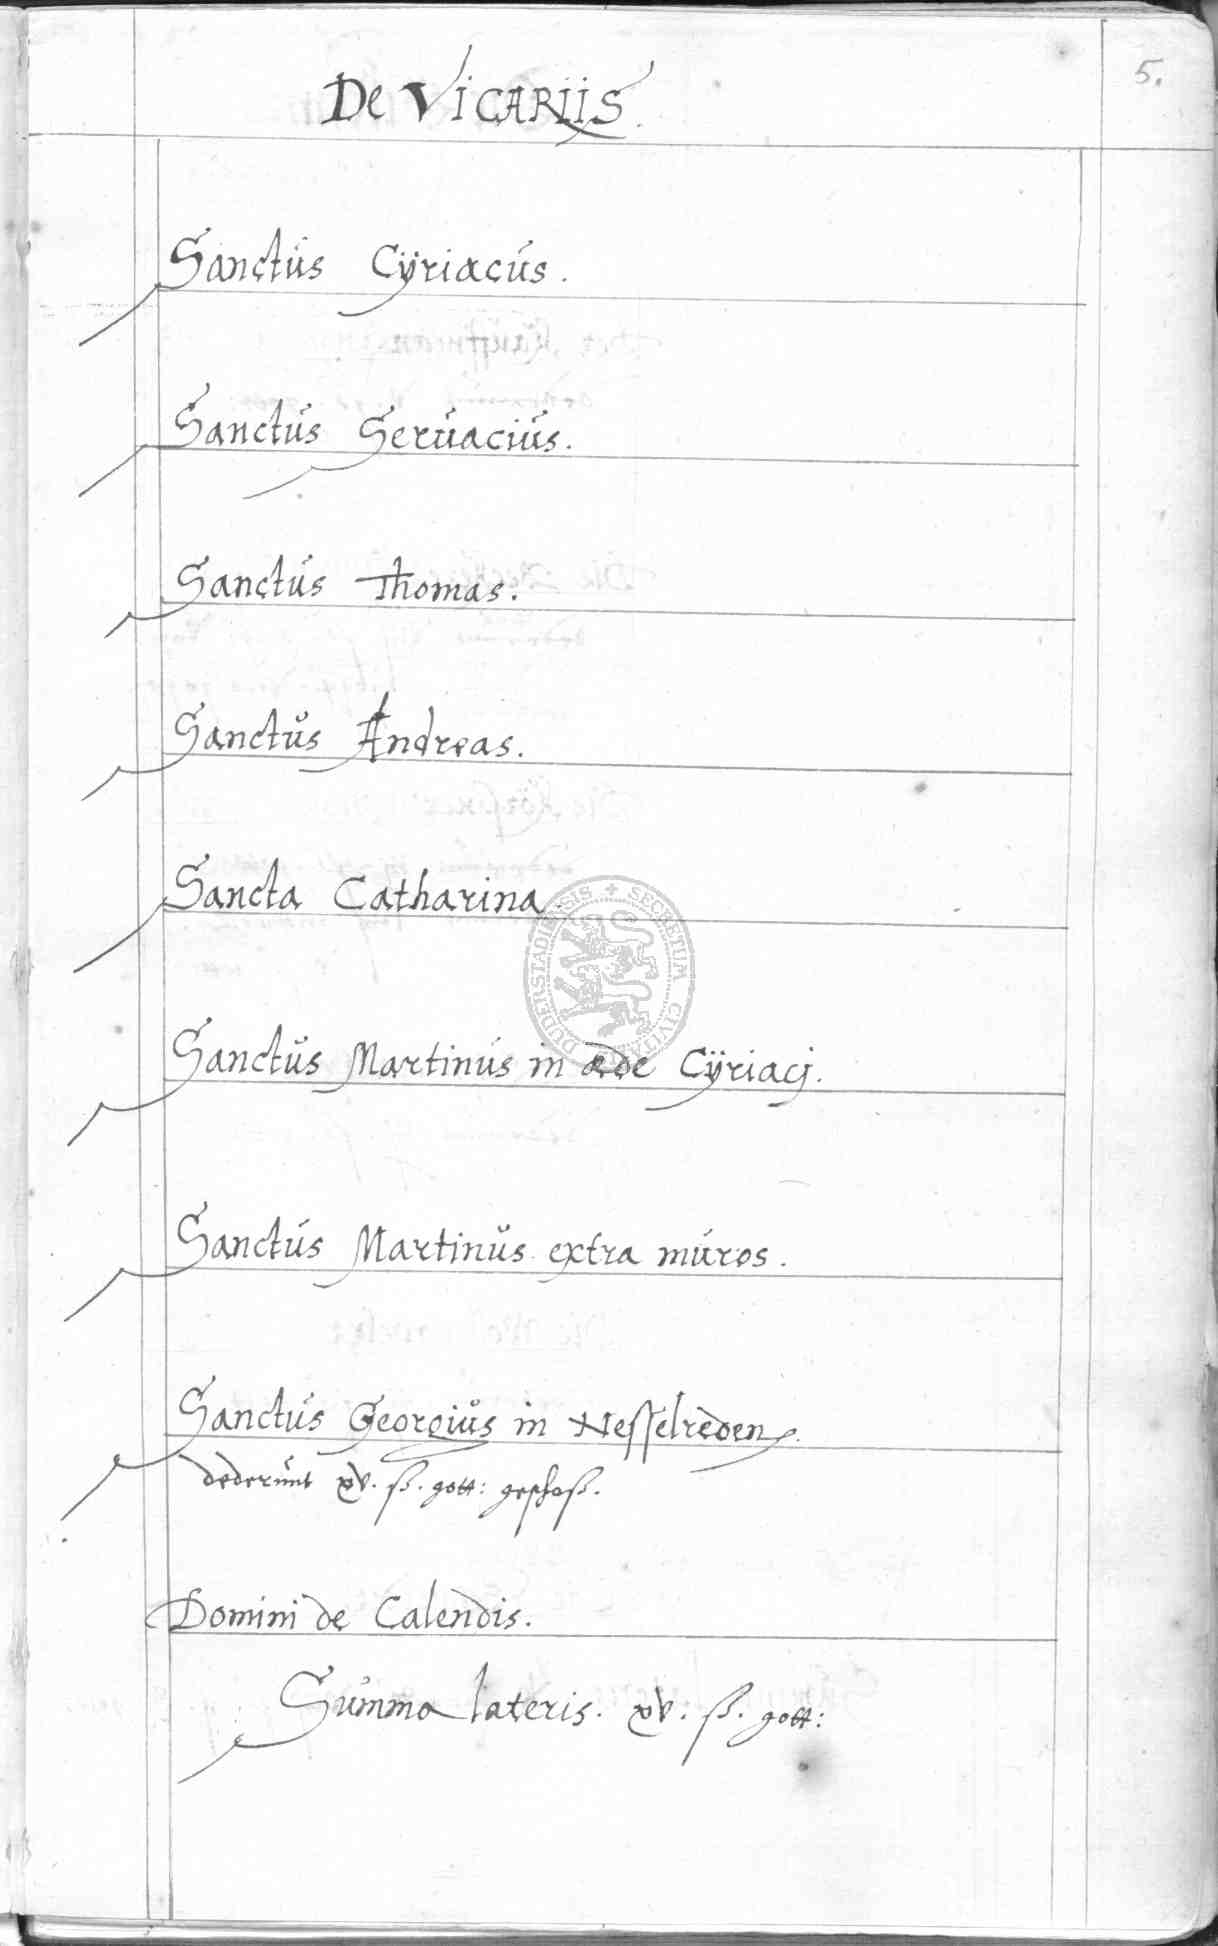 5.
De Vicariis.
Sanctus Cÿriacus.
Sanctus Seruacius.
Sanctus Thomas.
Sanctus Andreas.
Sancta Catharina
Sanctus Martinus in æde Cÿriacj.
Sanctus Martinus extra muros.
Sanctus Georgius in Nesselreden.
dederunt xv. ß. gott: geschoß.
Domini de Calendis.
Summa lateris. xv: ß. gott:
SECRETUM CIVITATIS DUDERSTADIENSIS